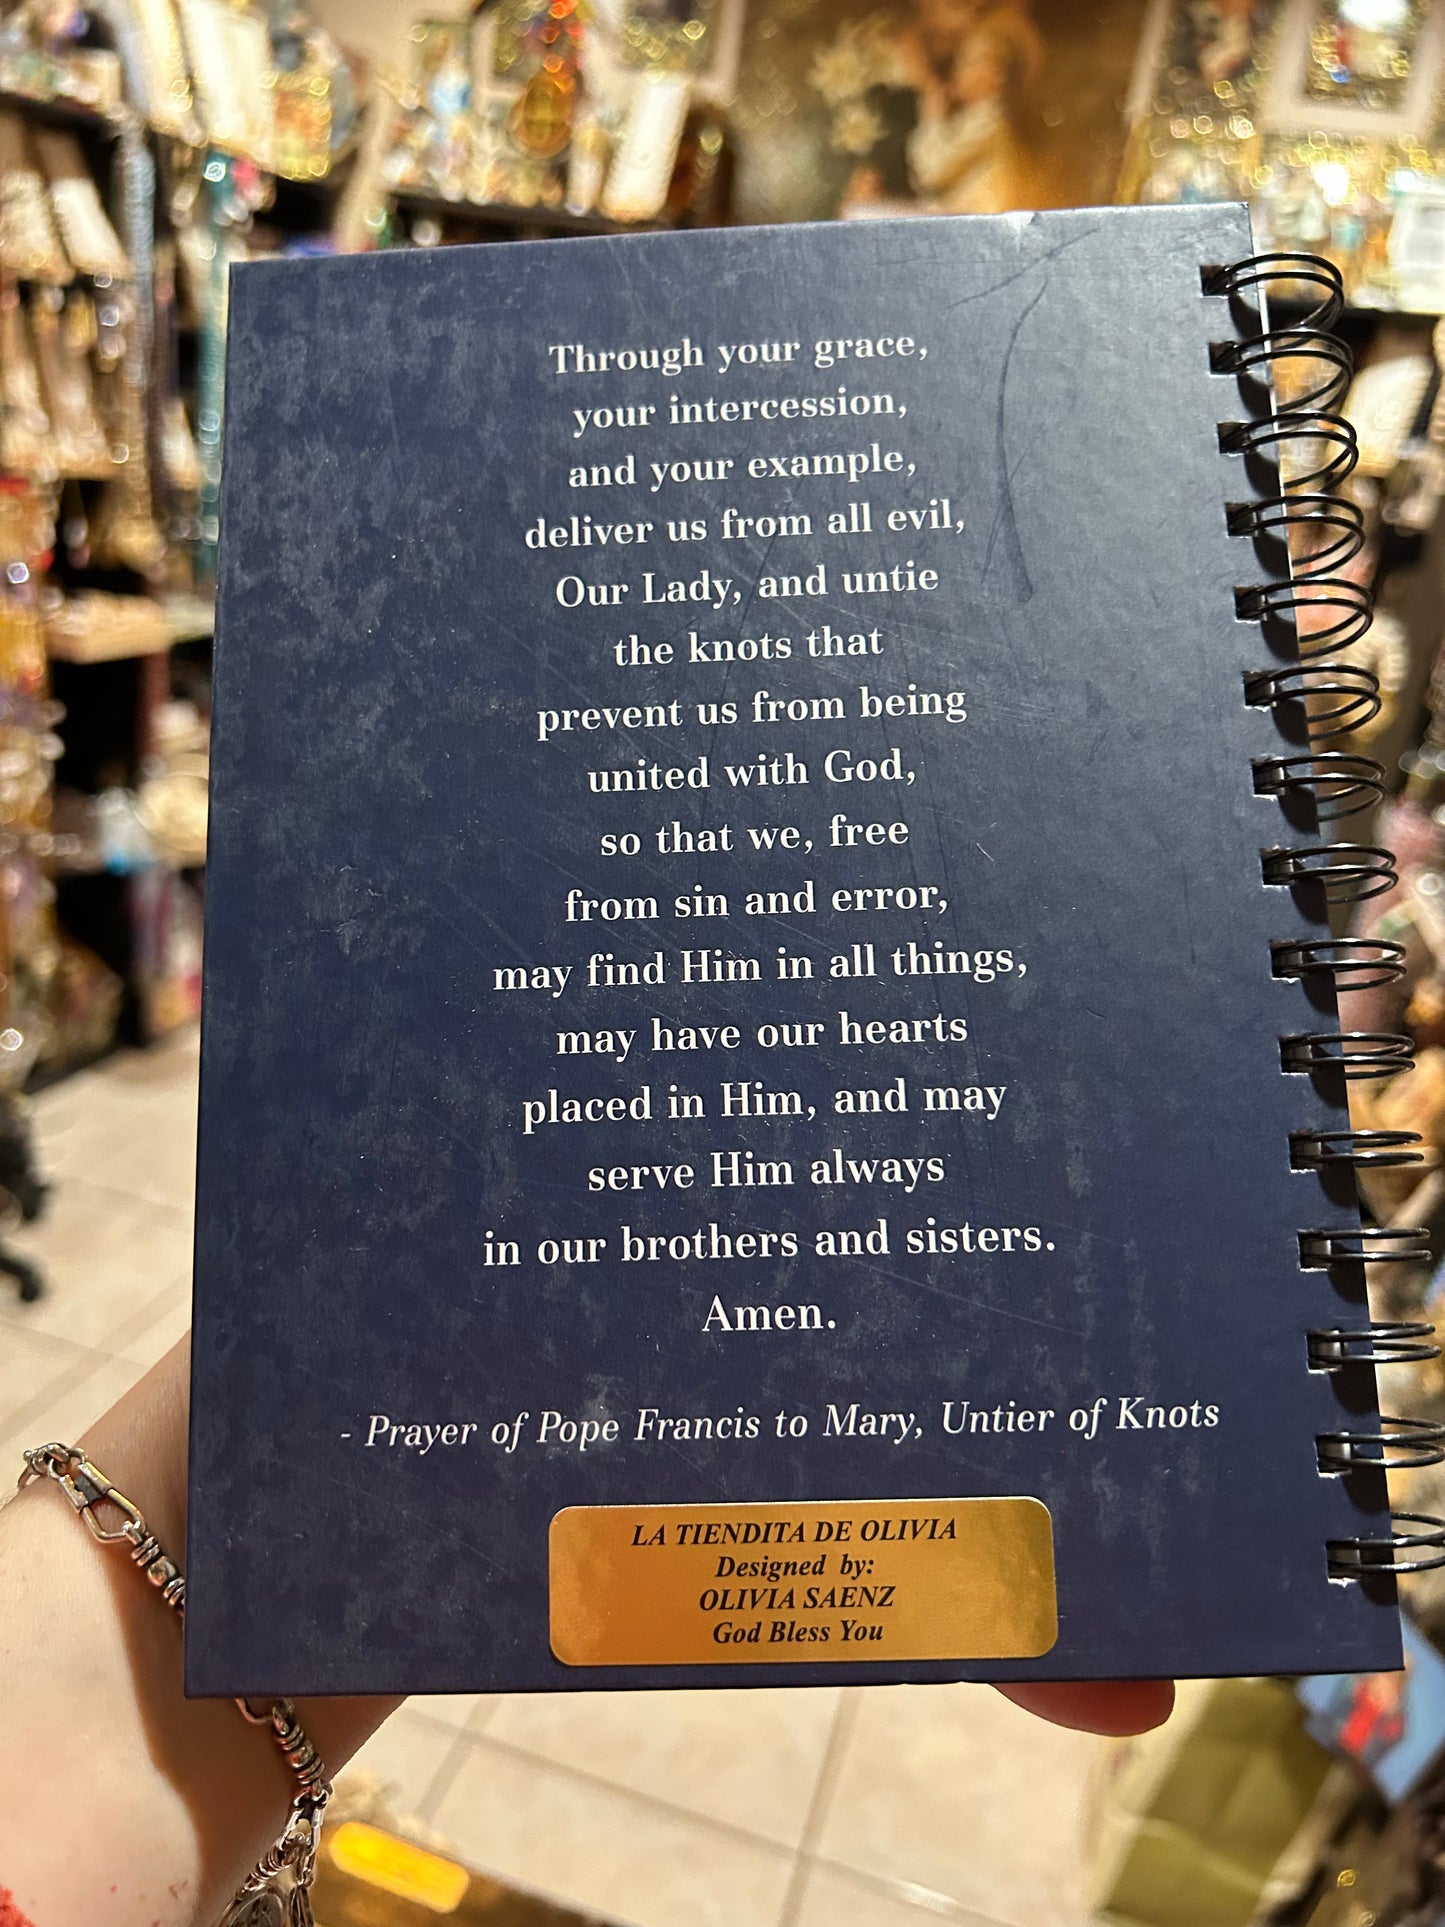 Through your grace,
your intercession,
and your example,
deliver us from all evil,
Our Lady, and untie
the knots that
prevent us from being
united with God,
so that we, free
from sin and error,
may find Him in all things,
may have our hearts
placed in Him, and may
serve Him always
in our brothers and sisters.
Amen.
- Prayer of Pope Francis to Mary, Untier of Knots
LA TIENDITA DE OLIVIA
Designed by:
OLIVIA SAENZ
God Bless You